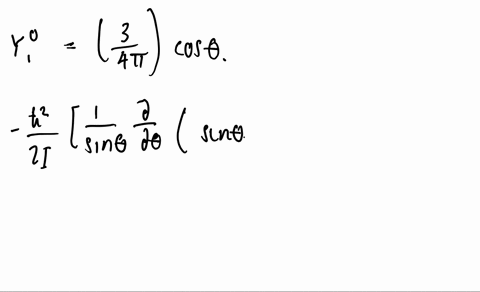 Y₁⁰ = (3/4π) cosθ.
- ℏ²/2I [ 1/sinθ ∂/∂θ ( sinθ